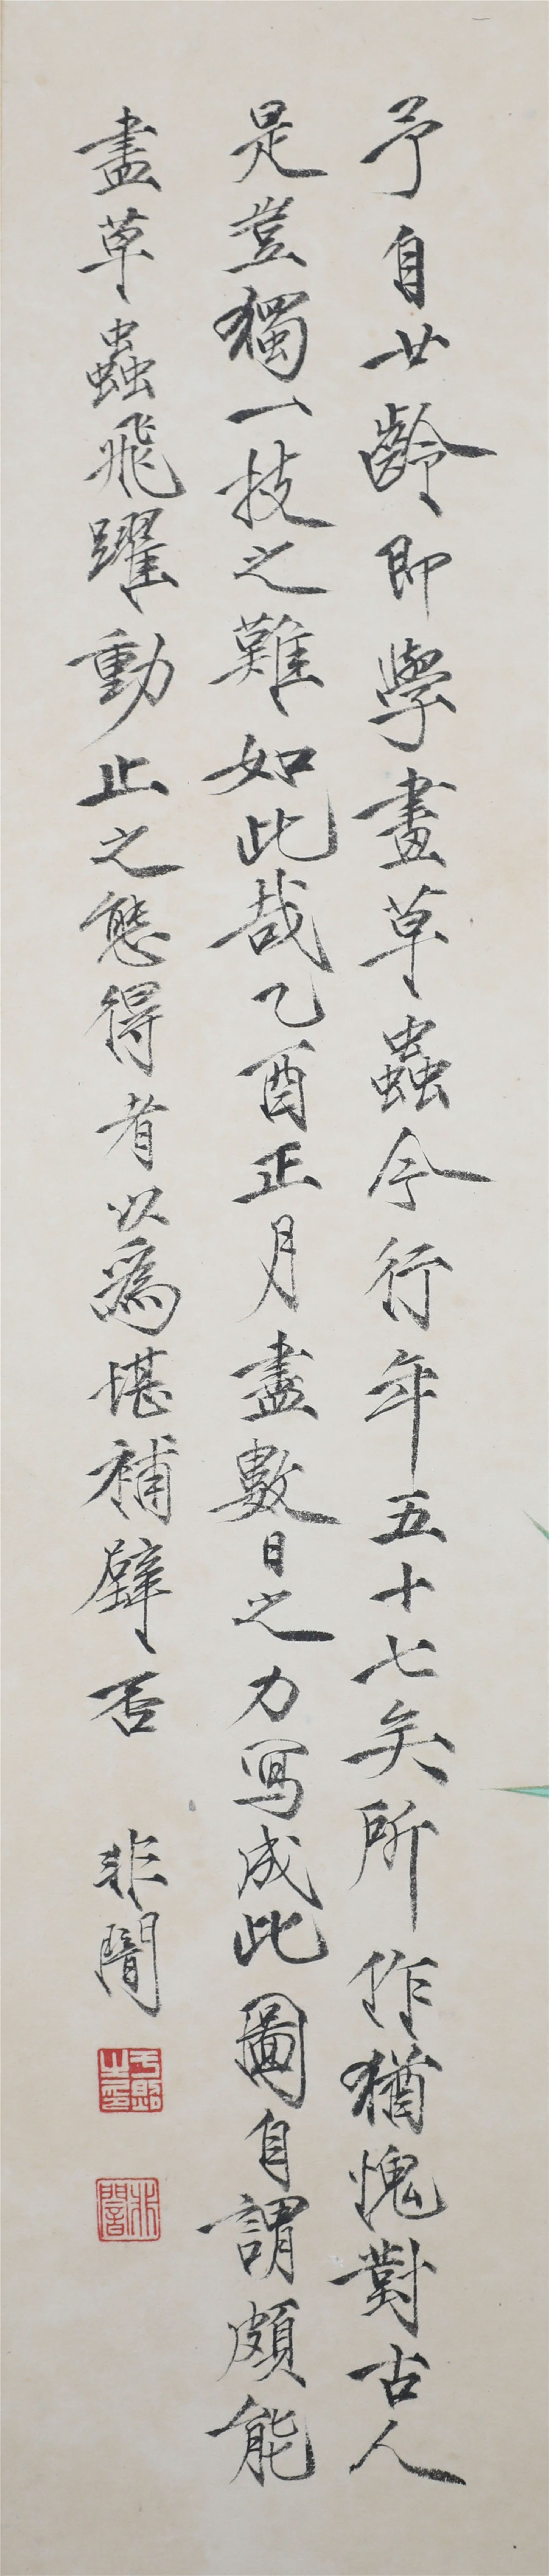 予自廿齡即學畫草蟲今行年五十七矣所作猶愧對古人
是豈獨一技之難如此哉乙酉正月盡數日之力寫成此圖自謂頗能
盡草蟲飛躍動止之態得者以為堪補壁否
非闇
非闇